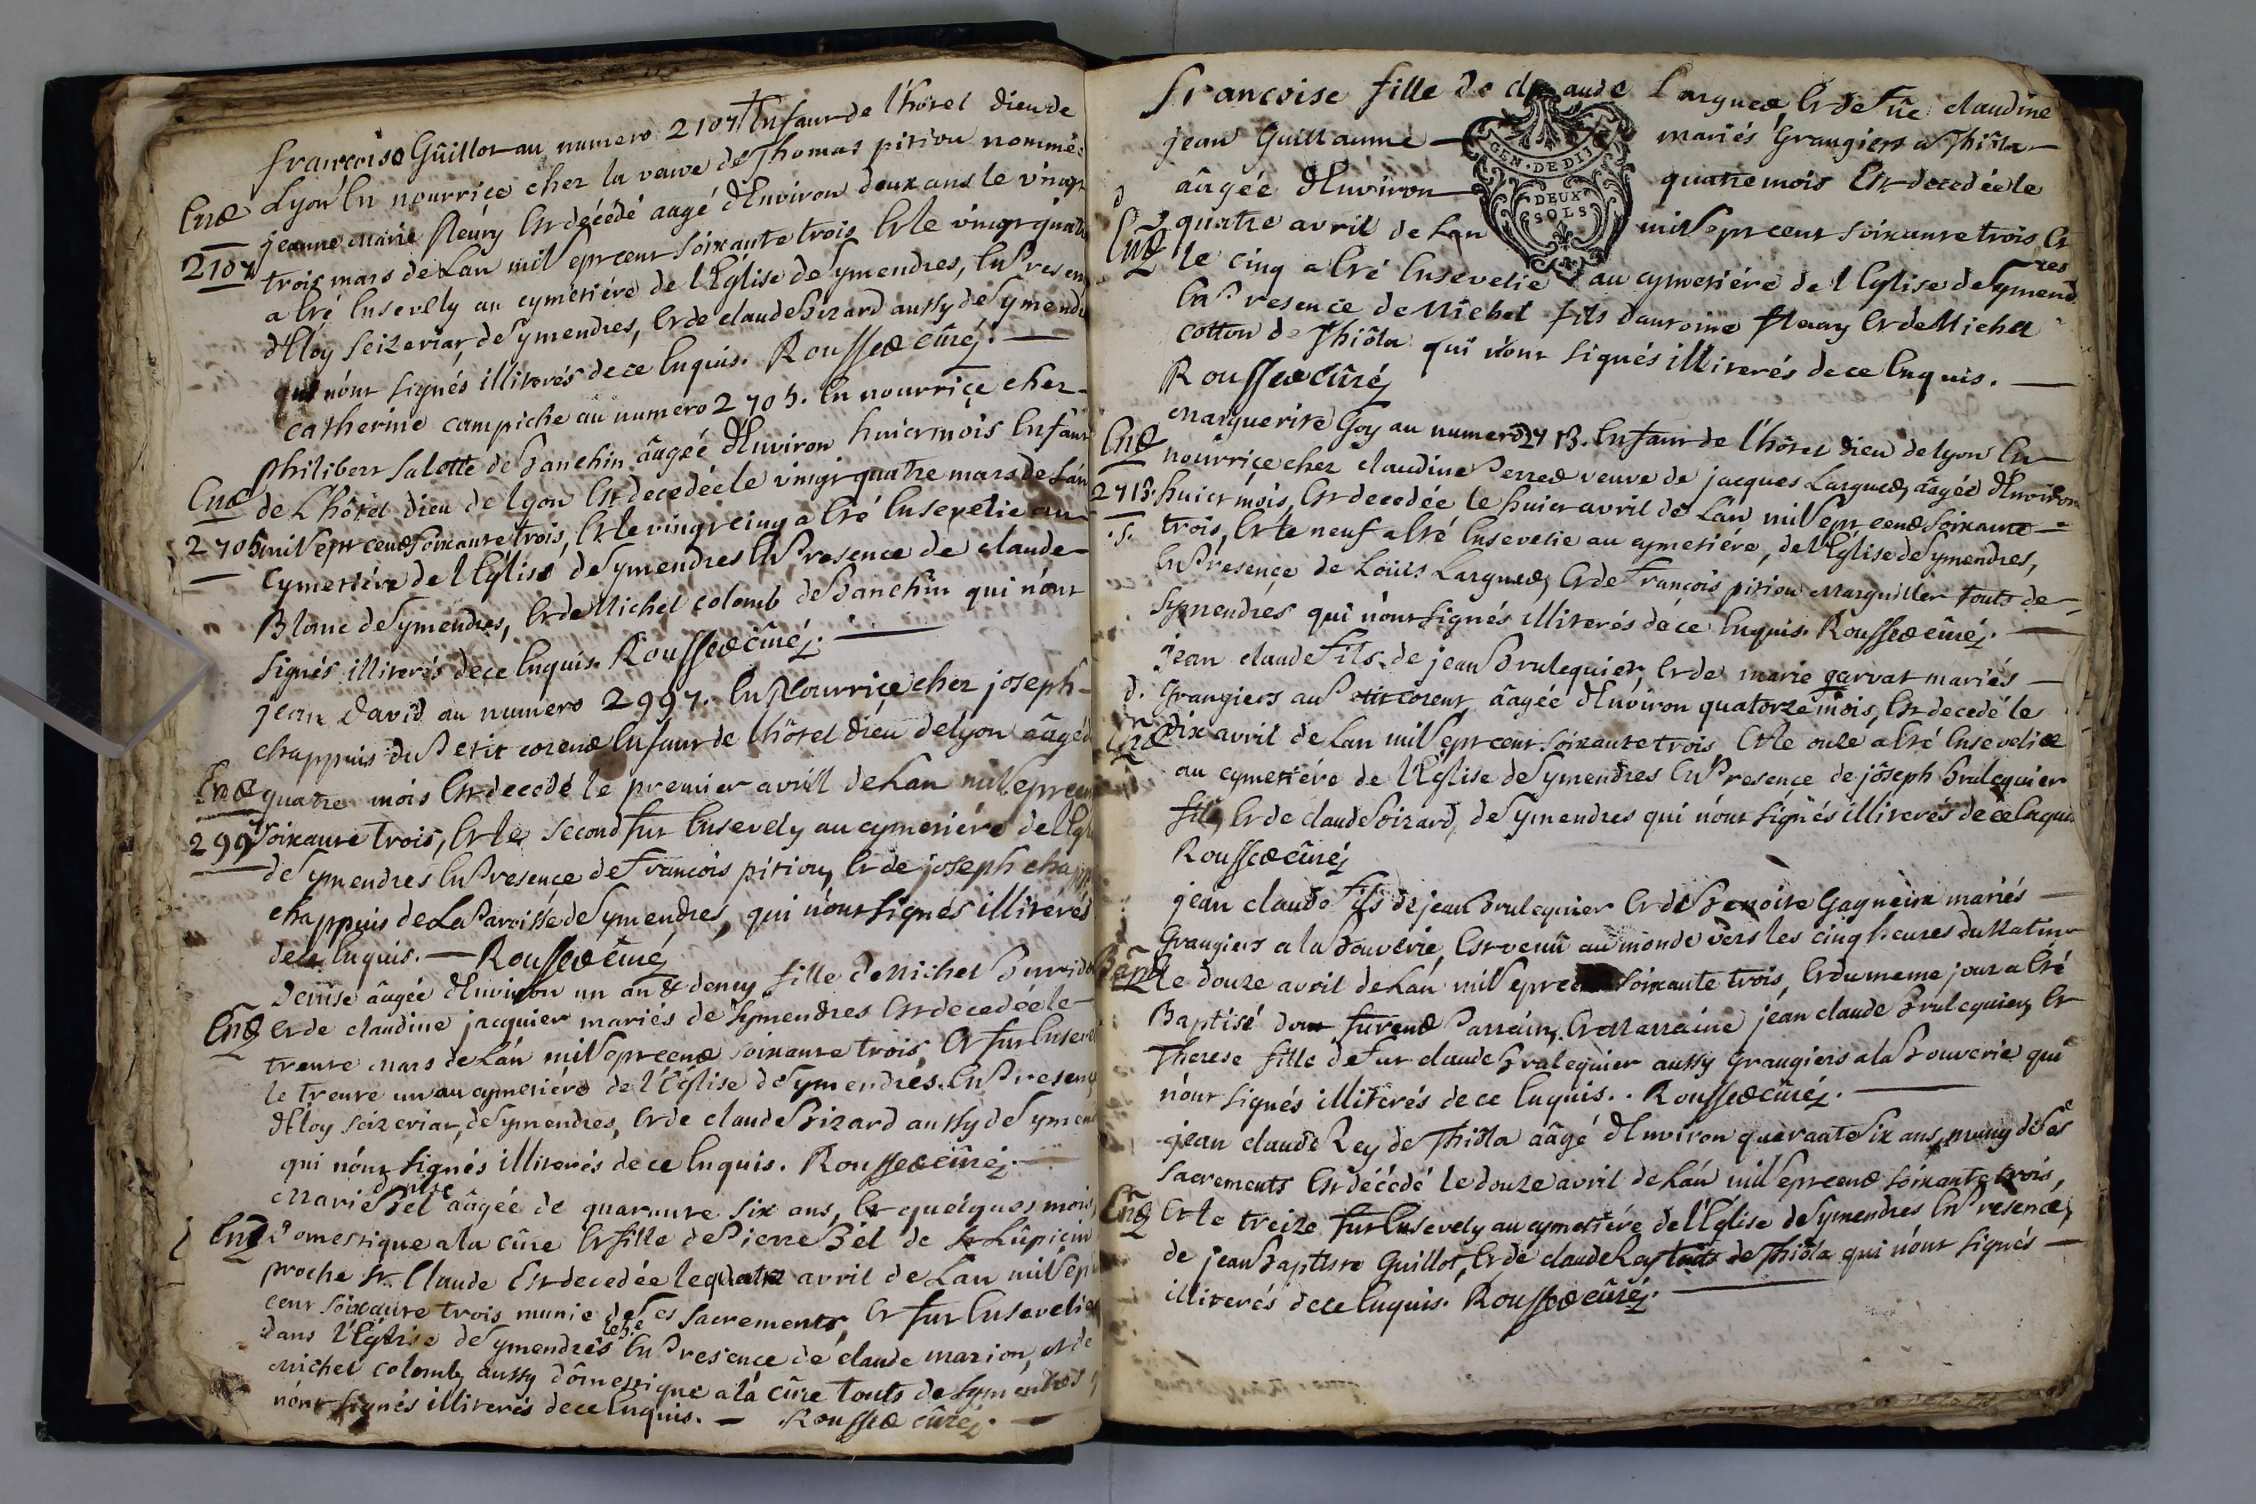 françoise Guillot au numero 2107 Enfant de l'hôtel dieu de
Lyon En nourrice chez la veuve de Thomas pition nommée
Ene
jeanne marie fleury Est décédé aagé d'Environ deux ans le vingt
2107
trois mars de Lan mil Sept cent soixante trois Et le vingt quatre
a Eté Ensevely au cymetiére de l'Eglise de Symendres, En Presen
d'Eloy seizeriat, de Symendres, Et de claude Bizard aussy de Symendr
qui n'ont signés illiterés de ce Enquis. Roussed cûré.
catherine campiche au numero 2705. En nourriçe chez
philibert salotte de Banchin aagéé d'Environ huict mois Enfant
Ene de L'hôtel dieu de lyon Est decedéé le vingt quatre mars de Lan
2705 mil Sept cent Soixante trois, Et le vingt cinq a Eté Ensevelie au
cymetiére de l'Eglise de Symendres En Presence de claude
Blanc de Symendres, Et de Michel colomb de Banchin qui n'ont
signés illiterés de ce Enquis. Roussed cûré.
jean david au numero 2997. En Nourriçe chez joseph
chappuis du Petit corent Enfant de l'hôtel dieu de lyon aagé
Ene quatre mois Est decedé le premier avril de Lan mil Sept cen
2997 soixante trois, Et le second fut Ensevely au cymetiére de l'Egl
de Symendres En Presençe de François pition, Et de joseph chapp
chappuis de La Paroisse de Symendres, qui n'ont signés illiterés
de ce Enquis. Roussed cûré
Denise aagéé d'Environ un an & demy fille de Michel
Ene Et de claudine jacquier mariés de Symendres Est decedéé le
trente mars de Lan mil Sept cent soixante trois, Et fut Ensevel
le trente un au cymetiére de l'Eglise de Symendrés. En Presençe
d'Eloy seizeriat, de Symendres, Et de claude Bizard aussy de Symen
qui n'ont signés illiterés de ce Enquis. Roussed cûré.
denise
Marie Bel aagéé de quarante six ans, Et quelques mois,
Ene Domestique a la cûre Et fille de Pierre Bél de St Lûpicin
proche St. Claude Est decedéé le quatre avril de Lan mil Sept
cent soixante trois munie de Ses sacrements, Et fut Ensevelie
dans l'Eglise de Symendrés En Presence de claude marion, et de
Michel colomb, aussy dômestique a lá cûre touts de Symendres
n'ont signés illiterés de ce Enquis. Roussed cûré.
françoise fille de claude Largued Et de Fûe claudine
jean Guillaume mariés Grangiers a Thiôla
aagéé d'Environ quatre mois Est decedéé le
quatre avril de Lan mil Sept cent soixante trois, Et
Ene le cinq a Eté Ensevelie au cymetiére de l'Eglise de Symendres
En Presence de Michel fils d'antoine fleury Et de Michel
cotton de Thiôla qui n'ont signés illiterés de ce Enquis.
Roussed cûré
GEN·DE DIJ
DEUX
SOLS
Marguerite Goy au numero 2713. Enfant de l'hôtel dieu de lyon En
Ene nourriçe chez claudine Perred veuve de jacques Largued, aagéé d'Environ
2713. huict mois, Est decedéé le huict avril de Lan mil Sept cent soixante
trois, Et le neuf a Eté Ensevelie au cymetiére, de l'Eglise de Symendres,
En Présençe de Louis Largued, Et de François pition Marguiller touts de
Symendrés qui n'ont signés illiterés de ce Enquis. Roussed cûré.
jean claude fils de jean Brulequier, Et de marie garvat mariés
d. Grangiers au Petit corent, aagéé d'Environ quatorze mois, Est decedé le
Ene dix avril de Lan mil Sept cent soixante trois Et le onze a Eté Ensevelie
au cymetiére de l'Eglise de Symendres En Presence de jôseph Brulequier
fils, Et de claude Bizard, de Symendres qui n'ont signés illiterés de ce Enquis
Roussed cûré
jean claude fils de jean Brulequier Et de Benoite Gagneux mariés
Grangiers a la Bouverie, Est venû au monde vers les cinq heures du Matin
Bapt le douze avril de Lan mil Sept cent soixante trois, Et du meme jour a Eté
Baptisé dont furent Parrain, Et Marraine jean claude Brulequier, Et
Therese fille de Fut claude Brulequier aussy Grangiers a la Bouverie qui
n'ont signés illiterés de ce Enquis. Roussed cûré.
jean claude Rey de Thiôla aâgé d'Environ quarante Six ans, muny de Ses
sacrements Est décédé le douze avril de Lan mil Sept cent soixante trois,
Ene Et le treize fut Ensevely au cymetiére de l'Eglise de Symendres En Presence,
de jean Baptiste Guillot, Et de claude Rey touts de Thiôla qui n'ont signés
illiterés de ce Enquis. Roussed cûré.